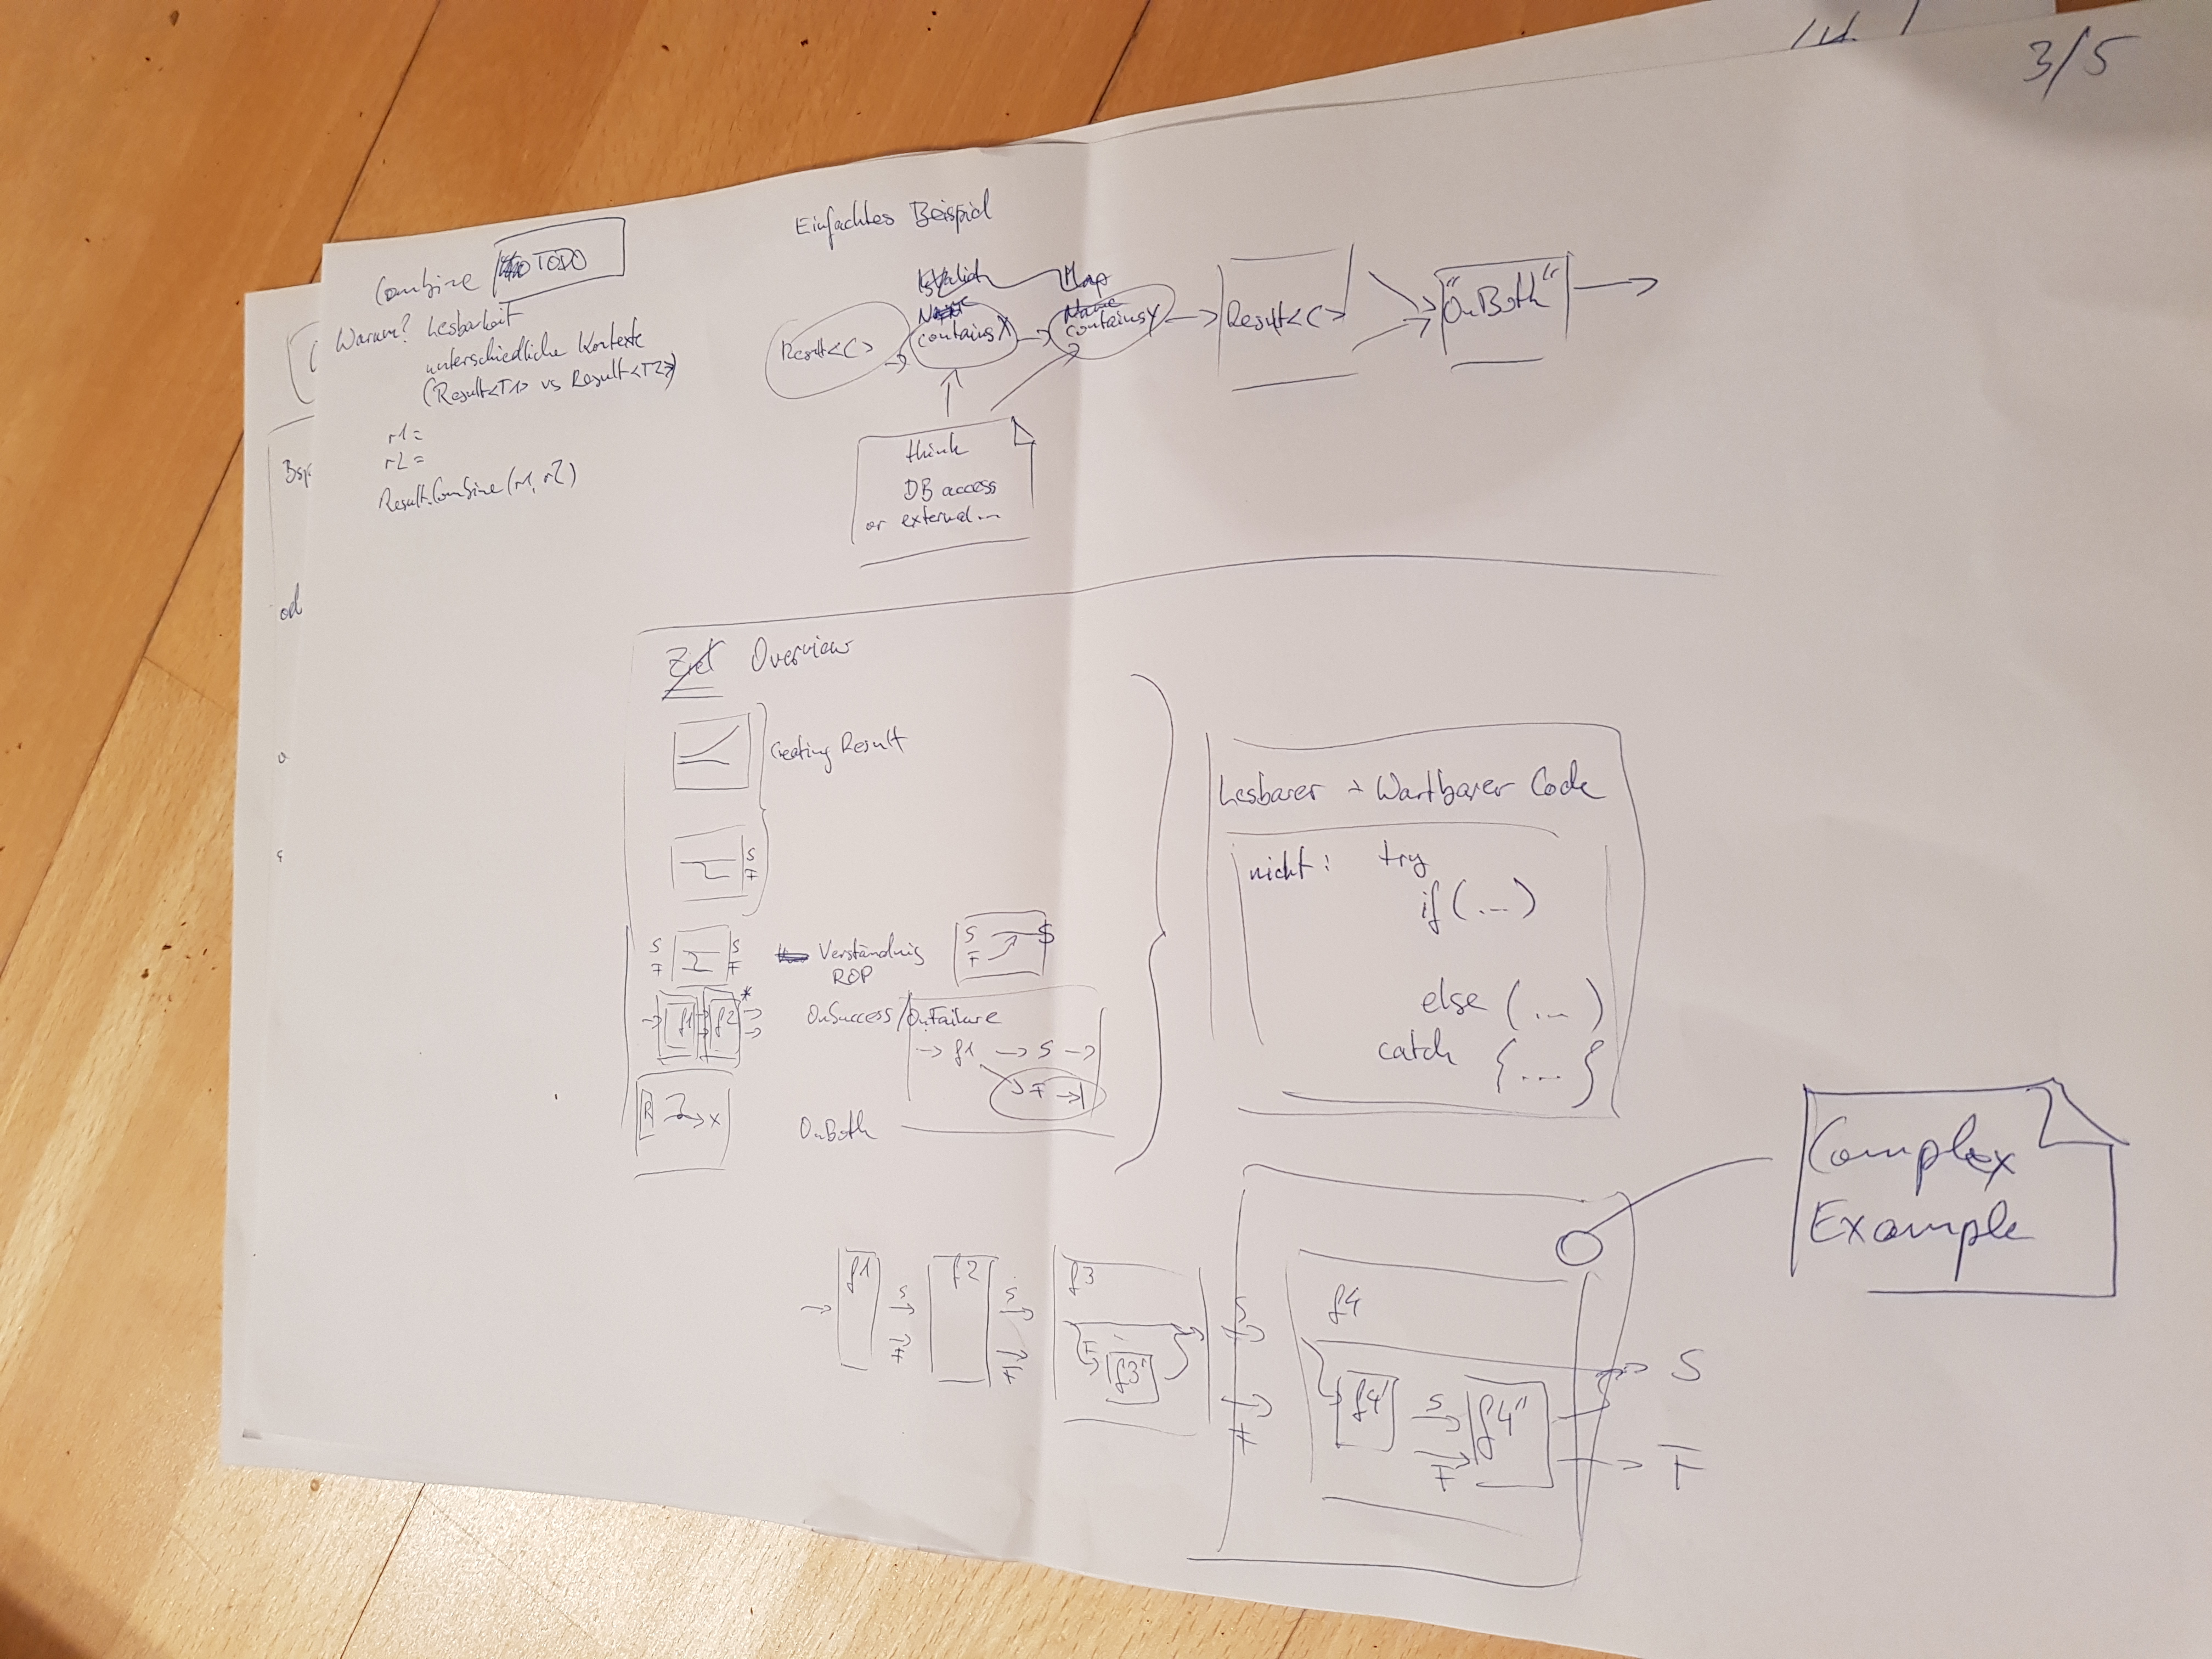 3/5
Combine TODO
Warum? Lesbarkeit
unterschiedliche Kontexte
(Result<T1> vs Result<T2>)
r1=
r2=
Result.Combine(r1, r2)
Bsp
od
Einfaches Beispiel
IsValid
Map
Name
Name
Result<C>
containsX
containsY
Result<C>
"OnBoth"
think
DB access
or external...
Ziel Overview
Creating Result
S
F
S
F
S
F
Verständnis
ROP
S
F
S
f1
f2
*
OnSuccess/OnFailure
f1
S
F
R
x
OnBoth
Lesbarer + Wartbarer Code
nicht: try
if (...)
else (...)
catch {...}
Complex
Example
f1
S
F
f2
S
F
f3
f3'
S
F
f4
f4'
S
F
f4"
S
F